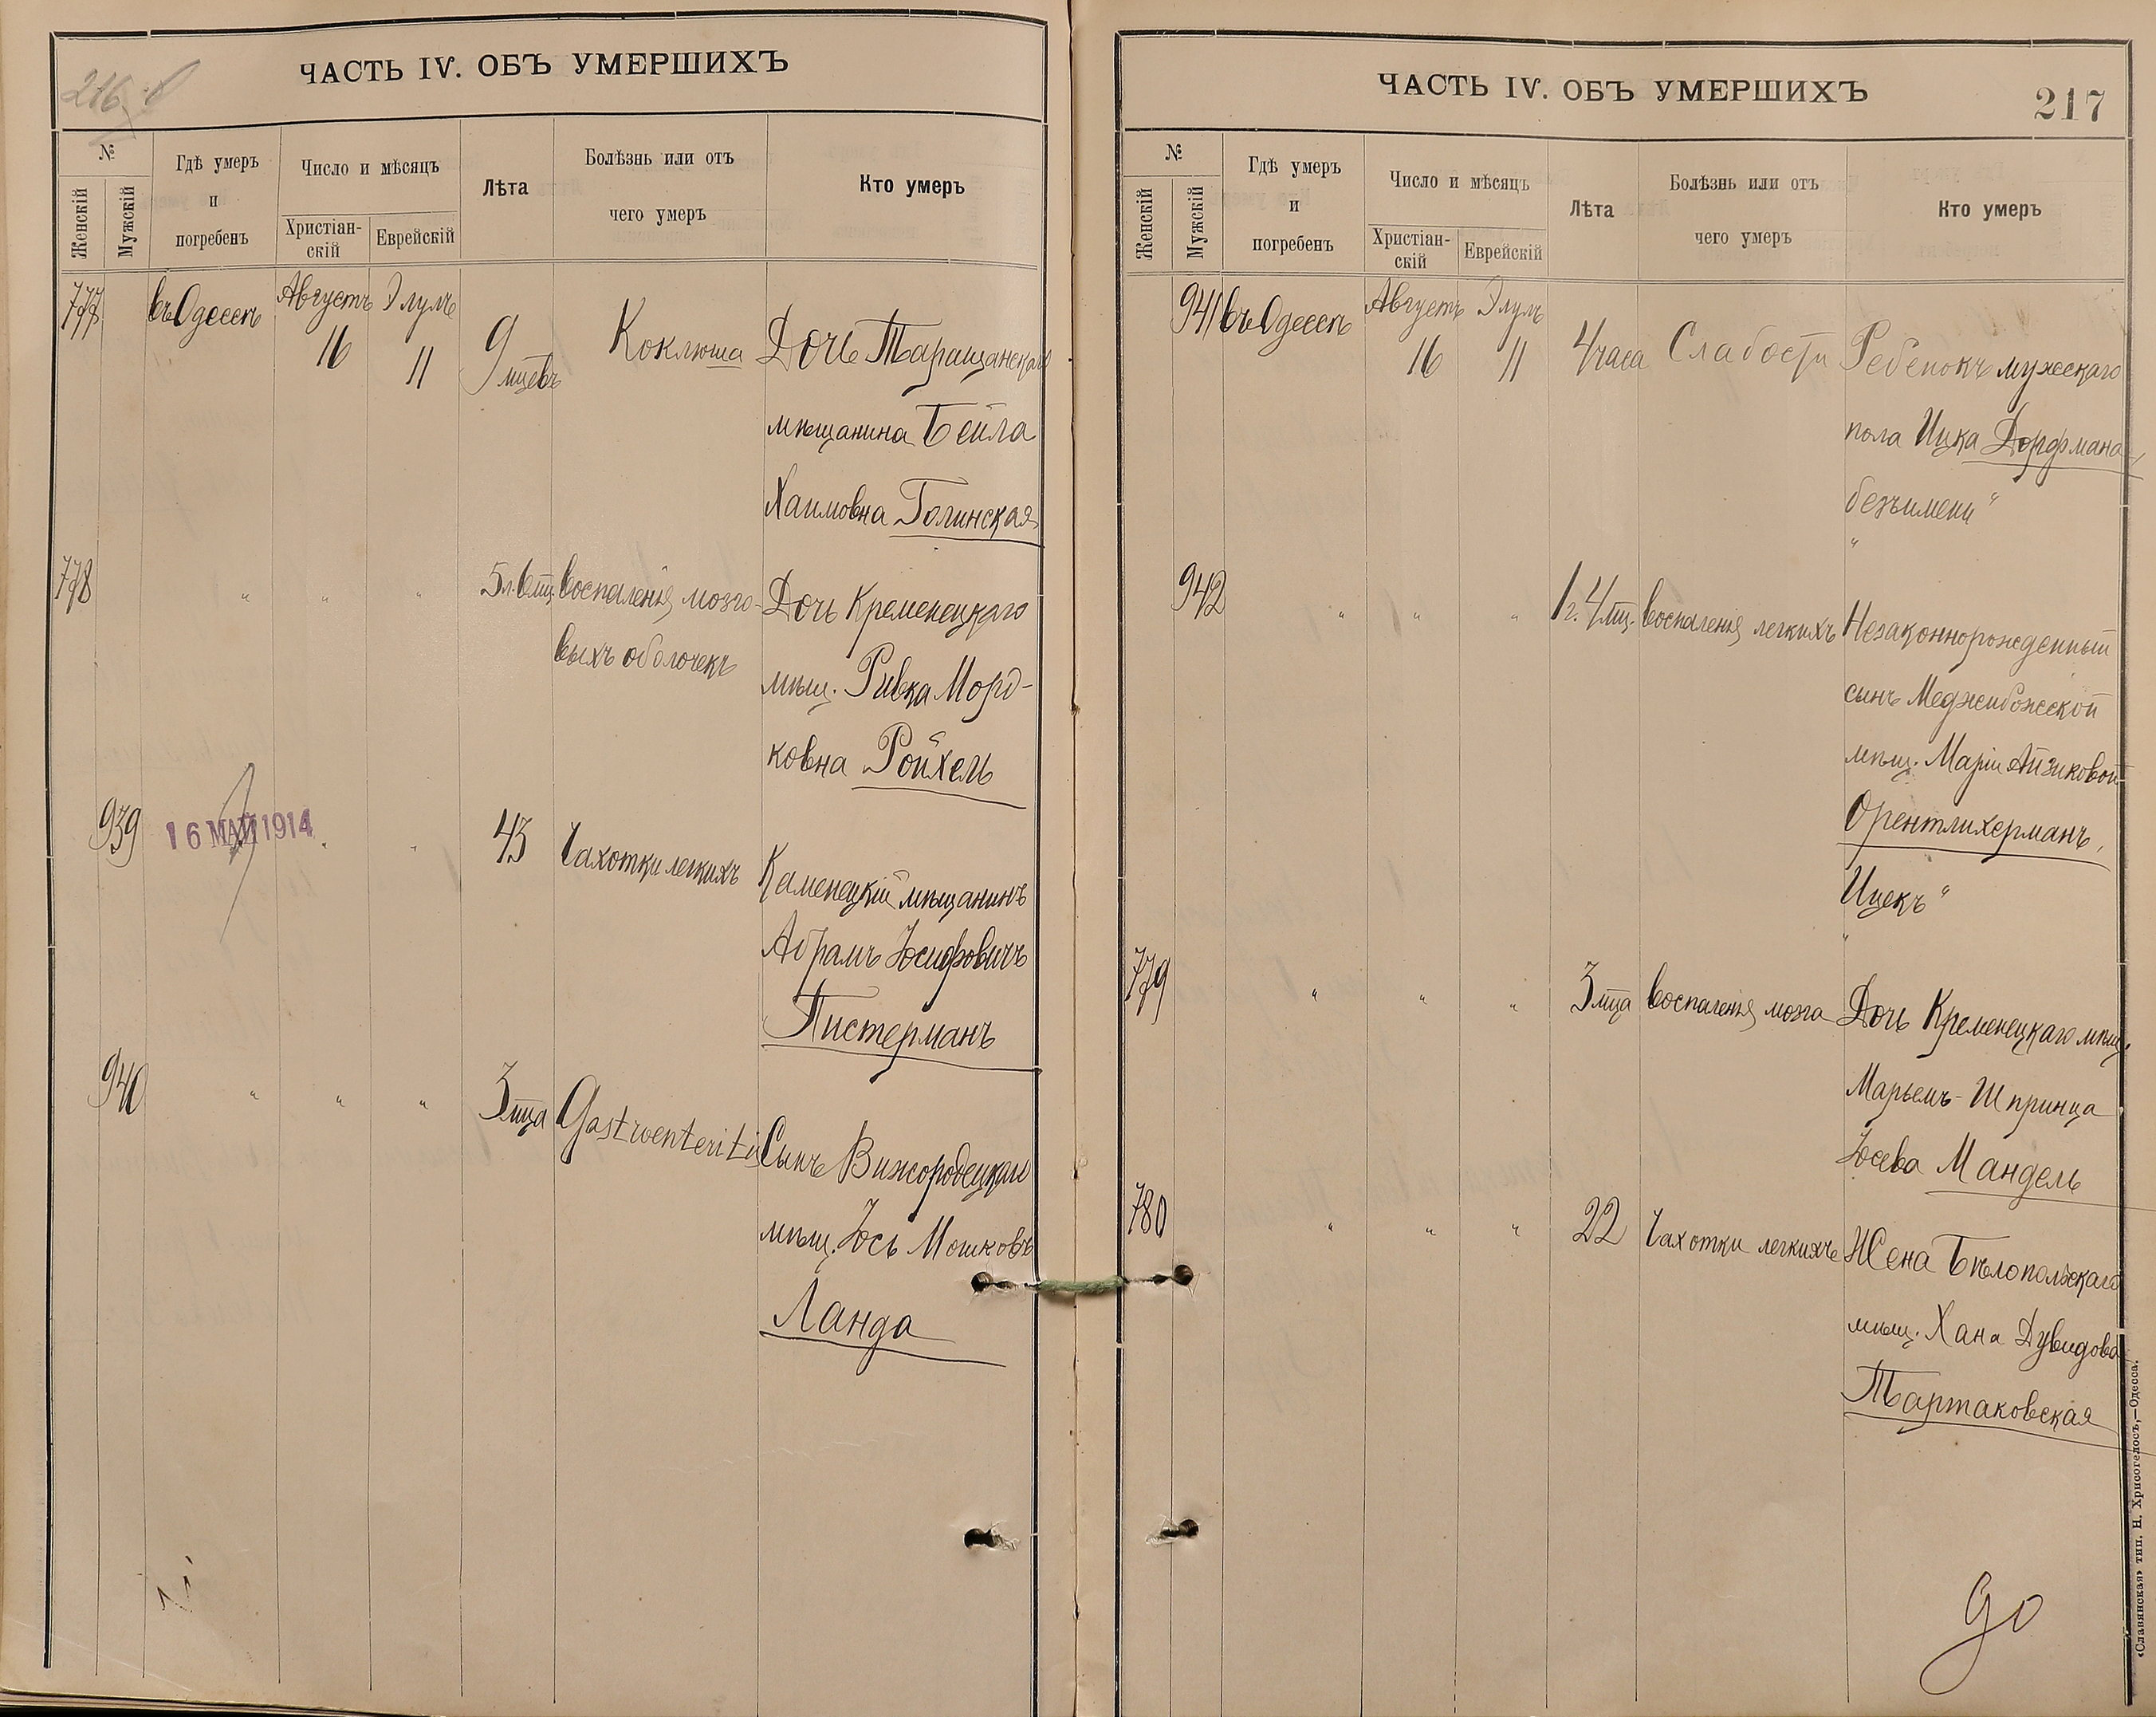 216
ЧАСТЬ IV. ОБЪ УМЕРШИХЪ
№
Женскій
Мужскій
Гдѣ умеръ
и
погребенъ
Число и мѣсяцъ
Христіан-
скій
Еврейскій
Лѣта
Болѣзнь или отъ
чего умеръ
Кто умеръ
777 въ Одессѣ Августъ 16 Элулъ 11 9 мцевъ Коклюша Дочь Таращанскаго
мѣщанина Бейла
Хаимовна Голинская
778 " " " 5 л. 6 мц. воспаленія мозго- Дочь Кременецкаго
выхъ оболочекъ мѣщ. Ривка Морд-
ковна Ройхель
939 16 МАЙ 1914 " " 43 Чахотки легкихъ Каменецкій мѣщанинъ
Абрамъ Іосифовичъ
Пистерманъ
940 " " " 3 мца Gastroenteritis Сынъ Вижгородецкаго
мѣщ. Іось Мошковъ
Ланда
ЧАСТЬ IV. ОБЪ УМЕРШИХЪ
217
№
Женскій
Мужскій
Гдѣ умеръ
и
погребенъ
Число и мѣсяцъ
Христіан-
скій
Еврейскій
Лѣта
Болѣзнь или отъ
чего умеръ
Кто умеръ
941 въ Одессѣ Августъ 16 Элулъ 11 4 часа Слабости Ребенокъ мужскаго
пола Ицка Дорфмана,
безъимени"
"
942 " " " 1 г. 4 мц. воспаленія легкихъ Незаконнорожденный
сынъ Меджибожской
мѣщ. Маріи Айзиковой
Орентлихерманъ,
Ицекъ"
"
779 " " " 3 мца воспаленія мозга Дочь Кременецкаго мѣщ.
Марьемъ-Шпринца
Іосева Мандель
780 " " " 22 Чахотки легкихъ Жена Бѣлопольскаго
мѣщ. Хана Дувидова
Тартаковская
«Славянская» тип. Н. Хрисогелосъ,—Одесса.